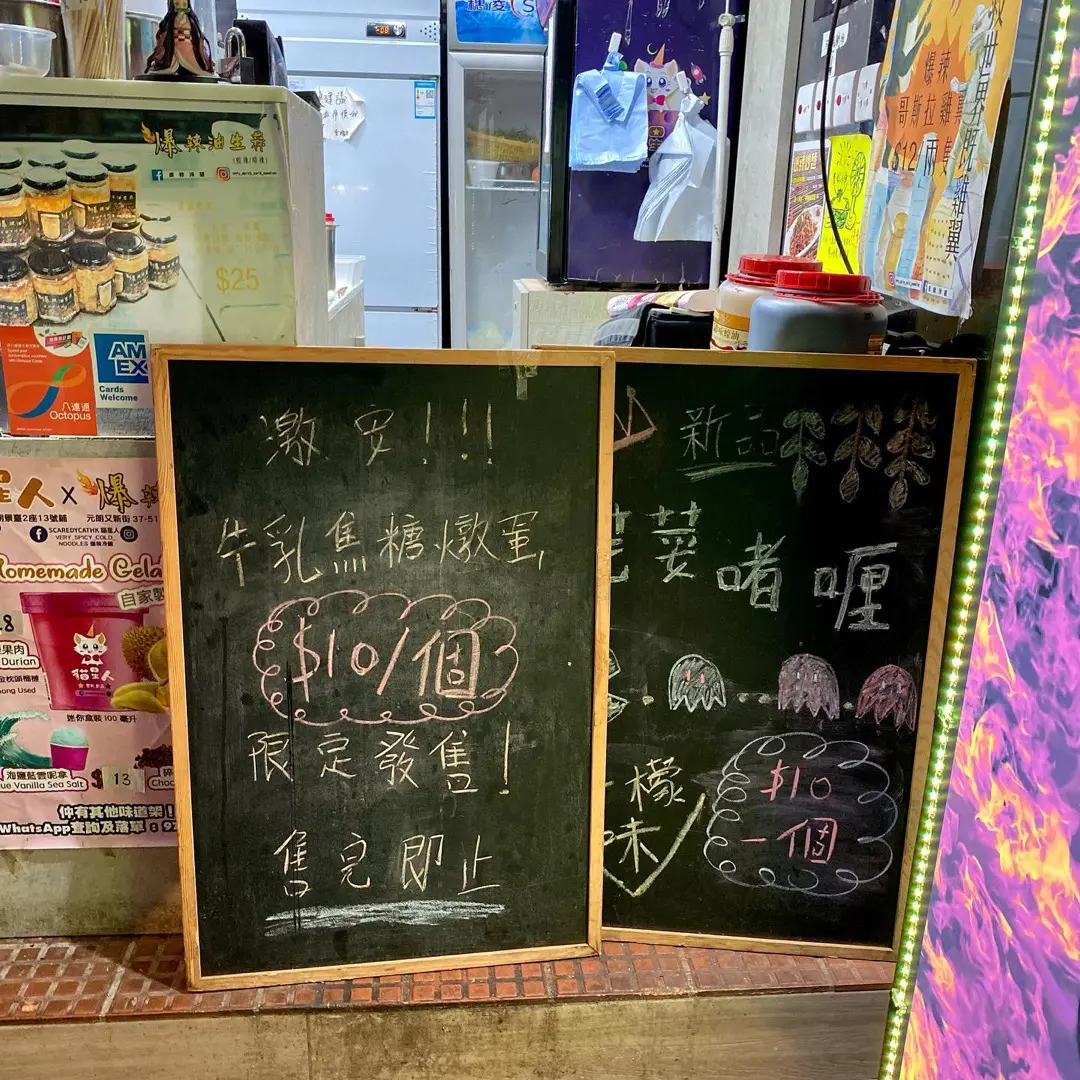 爆辣油生蠔
$25
Octopus
八達通
AM
EX
Cards
Welcome
星人 X 爆
元朗又新街 37-51
SCAREDYCATHK 貓星人
VERY_SPICY_COLD_
NOODLES 爆辣冷麵
Homemade Gela
自家製
Durian
貓星人
迷你盒裝 100 毫升
海鹽藍雲呢拿
ue Vanilla Sea Salt
$ 13
Choc
仲有其他味道架!
WhatsApp查詢及落單:
激安!!!
牛乳焦糖燉蛋
$10/個
限定發售!
售完即止
新品
芫荽啫喱
檬
味
$10
一個
爆辣
哥斯拉雞
$12兩隻